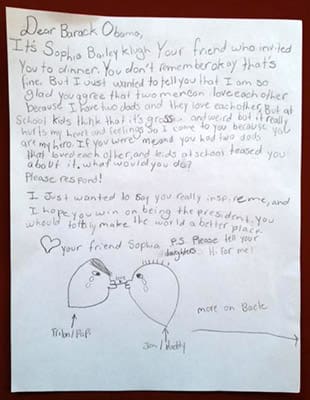 Dear Barack Obama,
It's Sophia Bailey Klugh Your friend who invited
You to dinner. You don't remember okay that's
fine. But I Just wanted to tell you that I am so
glad you agree that two men can love each other
because I have two dads and they love each other. But at
school kids think that it's gross and weird but it really
hurts my heart and feelings. So I come to you because you
are my hero. If you were me and you had two dads
that loved each other, and kids at school teased you
about it, what would you do?
Please respond!
I Just wanted to say you really inspire me, and
I hope you win on being the president. You
would totally make the world a better place.
your friend Sophia
P.S. Please tell your
daughters Hi for me!
love
more on Back
Jon/daddy